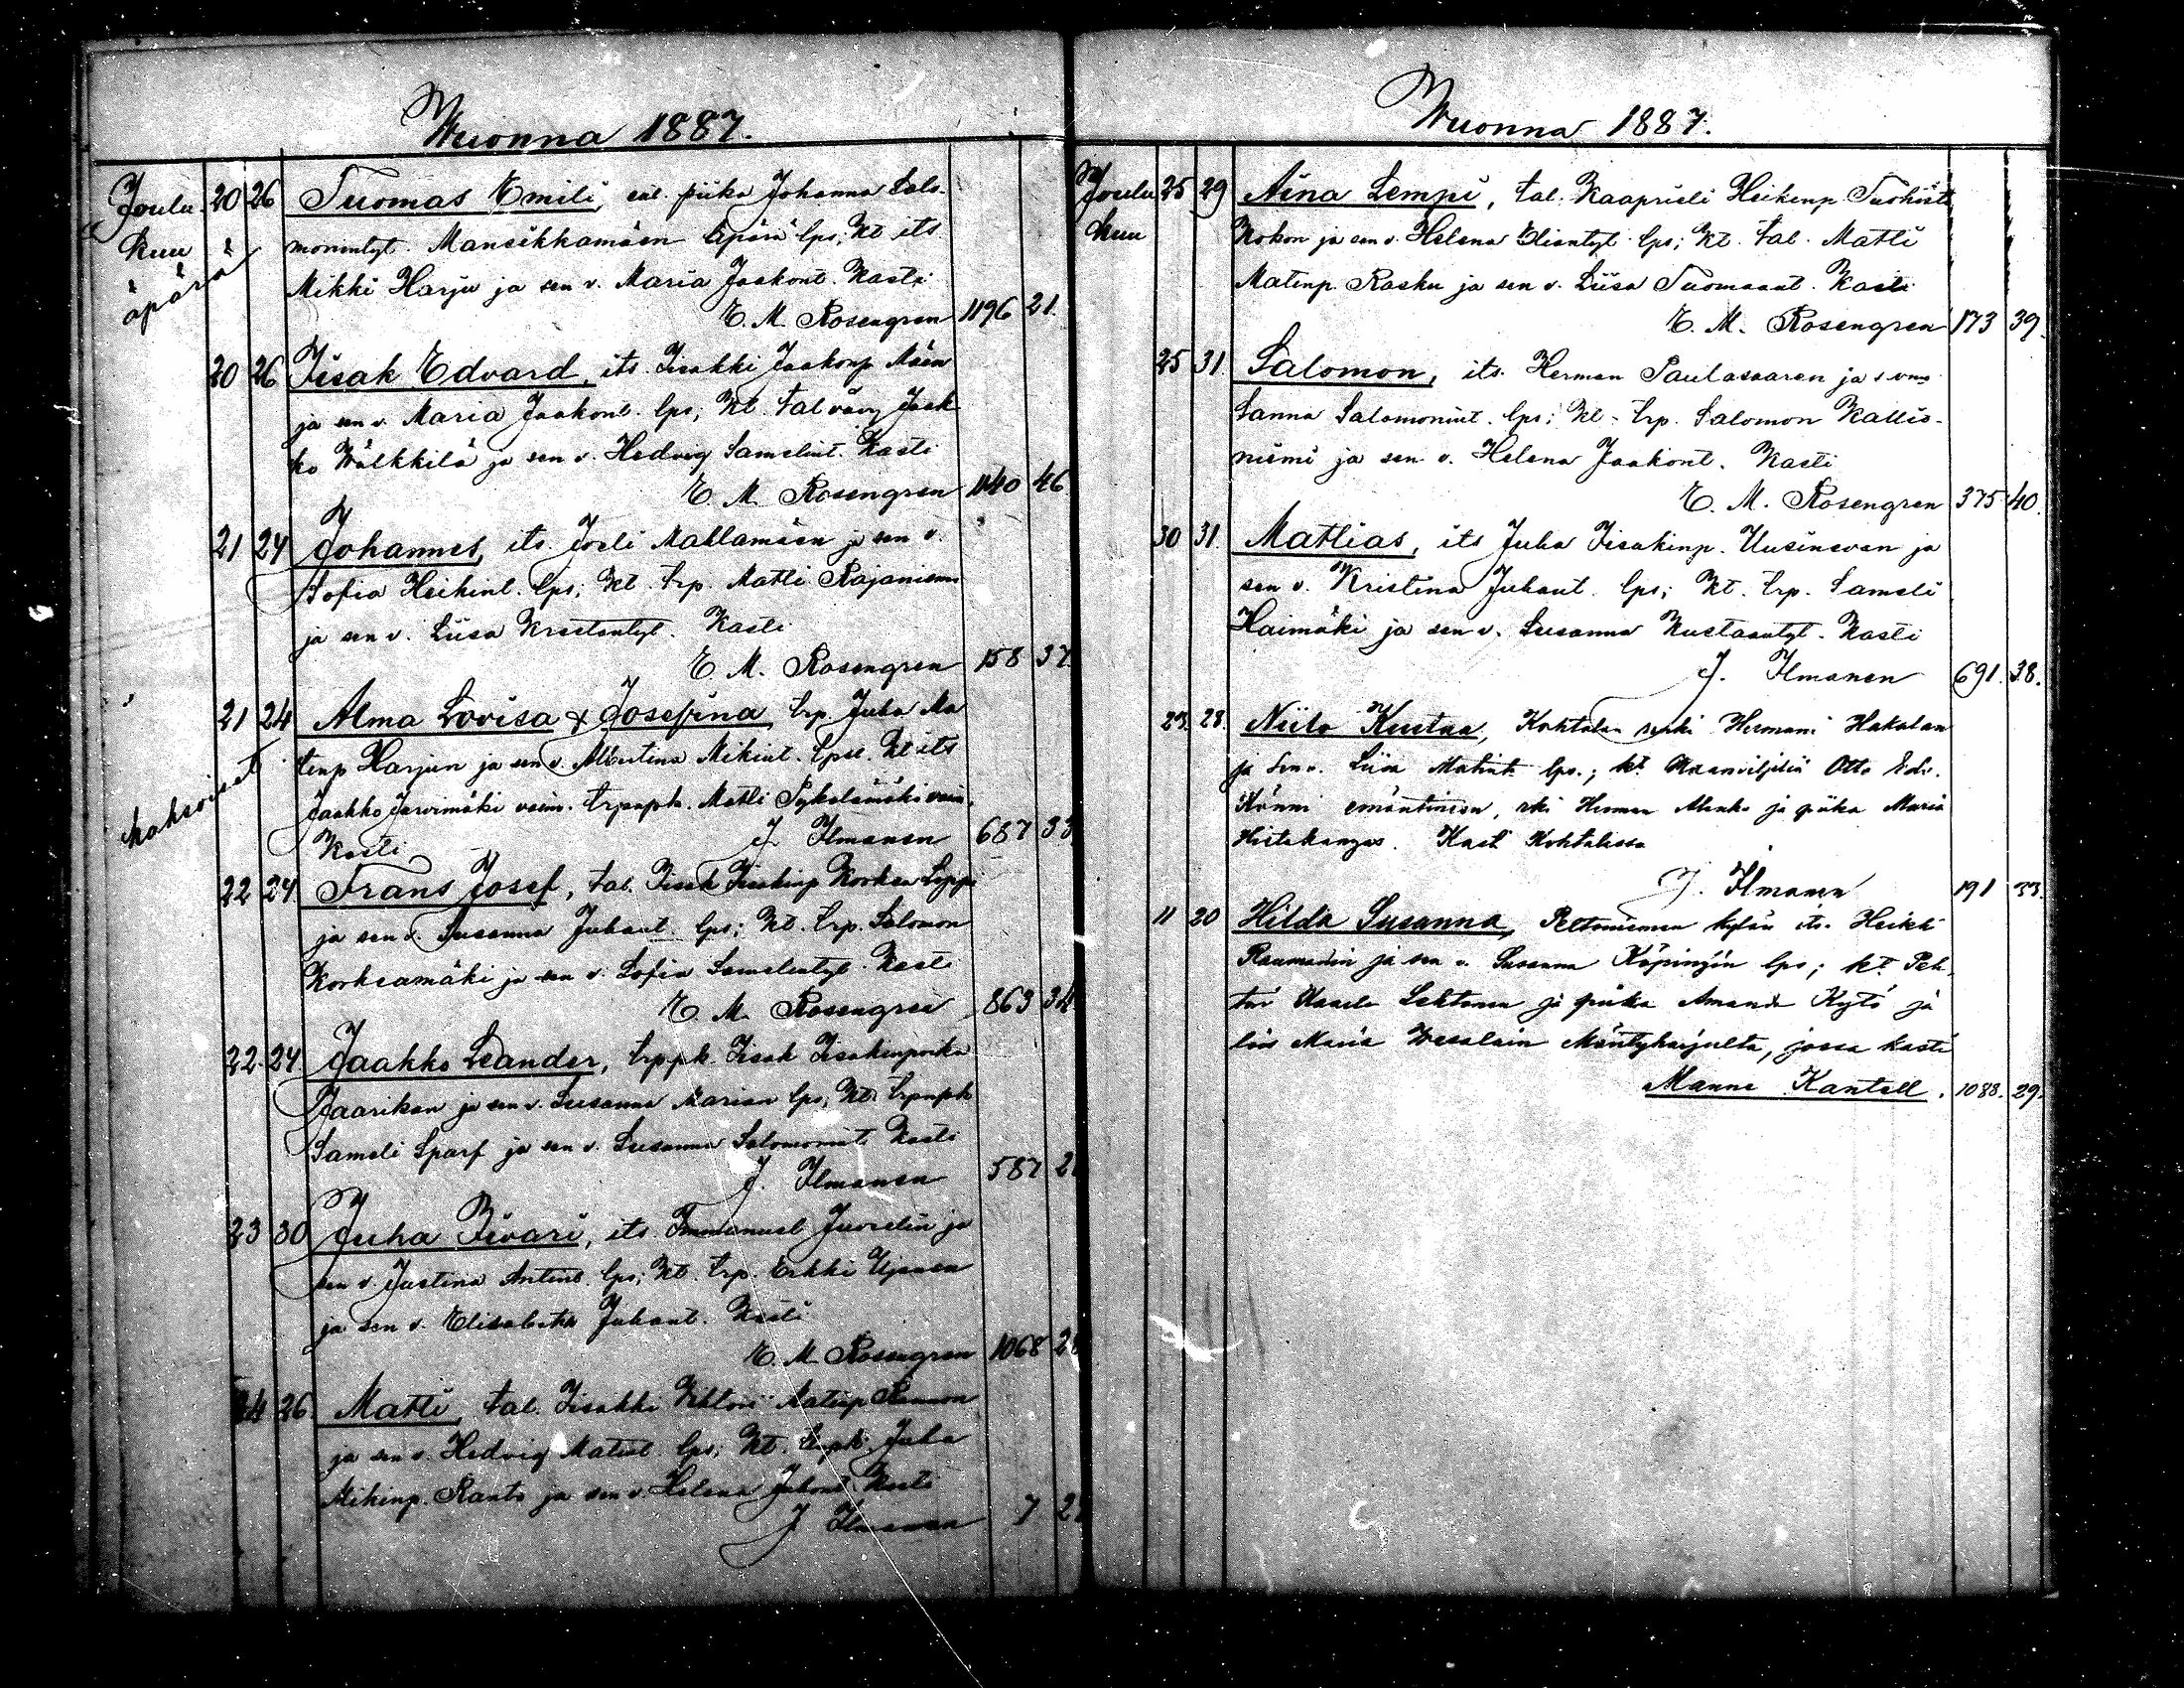 Wuonna 1887.
Joulu 20 26 Tuomas Emili, ent. piika Johanna Salo-
kuu monintyt. Mansikkamäen äpärä lps; Kt its
äpärä Mikki Harju ja sen v. Maria Jaakont. Kasti
E. M. Rosengren 1196 21.
20 26 Iisak Edvard, its. Iisakki Jaakonp Mäen
ja sen v. Maria Jaakont. lps; Kt. tal vävy Jaak
ko Wälkkilä ja sen v. Hedvig Samelint. Kasti
E. M. Rosengren 1140 46
21 24 Johannes, its. Joeli Mahlamäen ja sen v.
Sofia Heikint. lps; Kt. trp. Matti Rajaniemi
ja sen v. Liisa Kristantyt. Kasti
E. M. Rosengren 158 37
21 24 Alma Lovisa & Josefina trp Juha Ma
tinp Harjun ja sen v. Albertina Mikint. lpset. Kt its
kaksoiset Jaakko Jarvimäki vaim. trpnpk. Matti vaim.
Kasti J. Ilmanen 687 33
22 24 Frans Josef, tal. Iisak Iisakinp Korkea
ja sen v. Susanna Juhant. lps; Kt. trp. Salomon
Korkeamäki ja sen v. Sofia Samelintyt. Kasti
E. M. Rosengren 863 34
22. 24. Jaakko Leander, trppk. Iisak Iisakinpoika
Jaarikan ja sen v. Susanna Marian lps; Kt. trpnpk
Sameli Sparf ja sen v. Susanna Salomonint. Kasti
J. Ilmanen 587 2
23 30 Juha Iivari, its. Immanuel Juvelin ja
sen v. Justina Antint. lps; Kt. trp. Erkki Ujanen
ja sen v. Elisabetha Juhant. Kasti
E. M. Rosengren 1068 28
24 26. Matti, tal. Iisakki Viktori Matinp Rannon
ja sen v. Hedvig Matint. lps; Kt. Juha
Mikinp. Ranto ja sen v. Helena Juhant. Kasti
J Ilmanen 7 2
Wuonna 1887.
Joulu 25 29 Aina Lempi, tal. Kaaprieli Heikinp. Tuohisto
kuu Kokon ja sen v. Helena Eliantyt. lps; Kt. tal. Matti
Matinp. Rasku ja sen v. Liisa Tuomaant. Kasti
E. M. Rosengren 173 39.
25 31 Salomon, its. Herman Paulasaaren ja s vm
Sanna Salomonint. lps; Kt. trp. Salomon Kallio-
niemi ja sen v. Helena Jaakont. Kasti
E. M. Rosengren 375 40.
30 31. Mattias, its Juha Iisakinp. Uusinevan ja
sen v. Kristina Juhant. lps; Kt. trp. Sameli
Haimäki ja sen v. Susanna Kustaantyt. Kasti
J. Ilmanen 691. 38.
23. 28. Niilo Kustaa, Kohtalan renki Hermani Hakalan
ja sen v. Liisa Matint. lps.; kt. Maanviljeliä Otto Edv.
Könni emäntineen, rki Herman Alanko ja piika Maria
Hietakangas. Kast. Kohtalassa
J. Ilmanen 191 33.
11 20 Hilda Susanna, Peltoniemen kylän its. Heikki
Raumanin ja sen v. Susanna Köpingin lps; kt. Peh-
tori Kaarle Lehtonen ja piika Amanda Kytö ja
Maria Wesalain Mäntyharjulta, jossa kasti
Manne Kantell. 1088. 29.